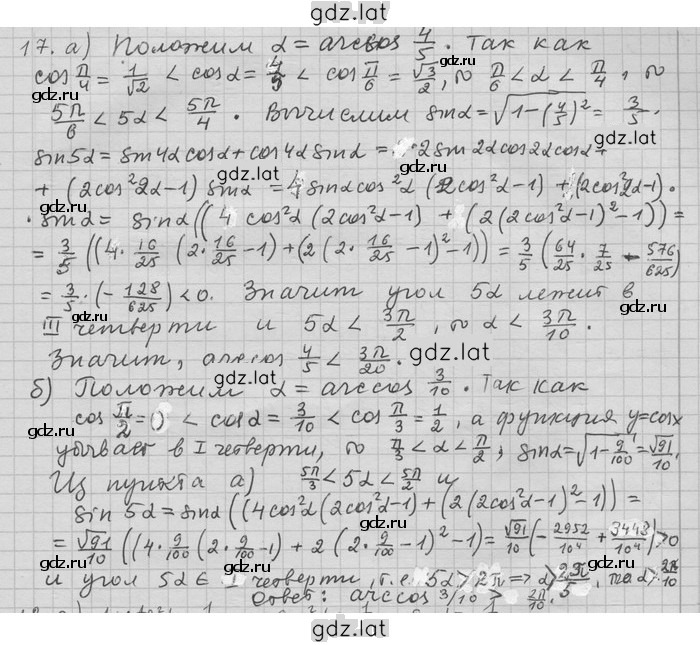 gdz.lat
17. а) Положим α = arccos 4/5. Так как
cos π/4 = 1/√2 < cos α = 4/5 < cos π/6 = √3/2, то π/6 < α < π/4, то
5π/6 < 5α < 5π/4. Вычислим sin α = √(1-(4/5)²) = 3/5.
sin5α = sin4α cosα + cos4α sinα = 2sin2α cos2α cosα +
+ (2cos²2α-1) sinα = 4sinα cos²α (2cos²α-1) + (2cos²2α-1)·
· sinα = sinα((4cos²α(2cos²α-1) + (2(2cos²α-1)²-1)) =
= 3/5 ((4·16/25 (2·16/25-1)+(2(2·16/25-1)²-1)) = 3/5 (64/25 · 7/25 - 576/625)
= 3/5·(-128/625) < 0. Значит угол 5α лежит в
III четверти и 5α < 3π/2, то α < 3π/10.
Значит, arccos 4/5 < 3π/20.
б) Положим α = arccos 3/10. Так как
cos π/2 = 0 < cosα = 3/10 < cos π/3 = 1/2, а функция y=cosx
убывает в I четверти, то π/3 < α < π/2; sinα = √(1-9/100) = √91/10.
Из пункта а) 5π/3 < 5α < 5π/2 и
sin 5α = sinα((4cos²α(2cos²α-1)+(2(2cos²α-1)²-1)) =
= √91/10 ((4·9/100 (2·9/100-1) + 2(2·9/100-1)²-1) = √91/10 (-2952/10⁴ + 3448/10⁴) > 0
и угол 5α ∈ I четверти, т.е. 5α > 2π => α > 2π/5, то α > 2π/10
Ответ: arccos 3/10 > 2π/10.
gdz.lat